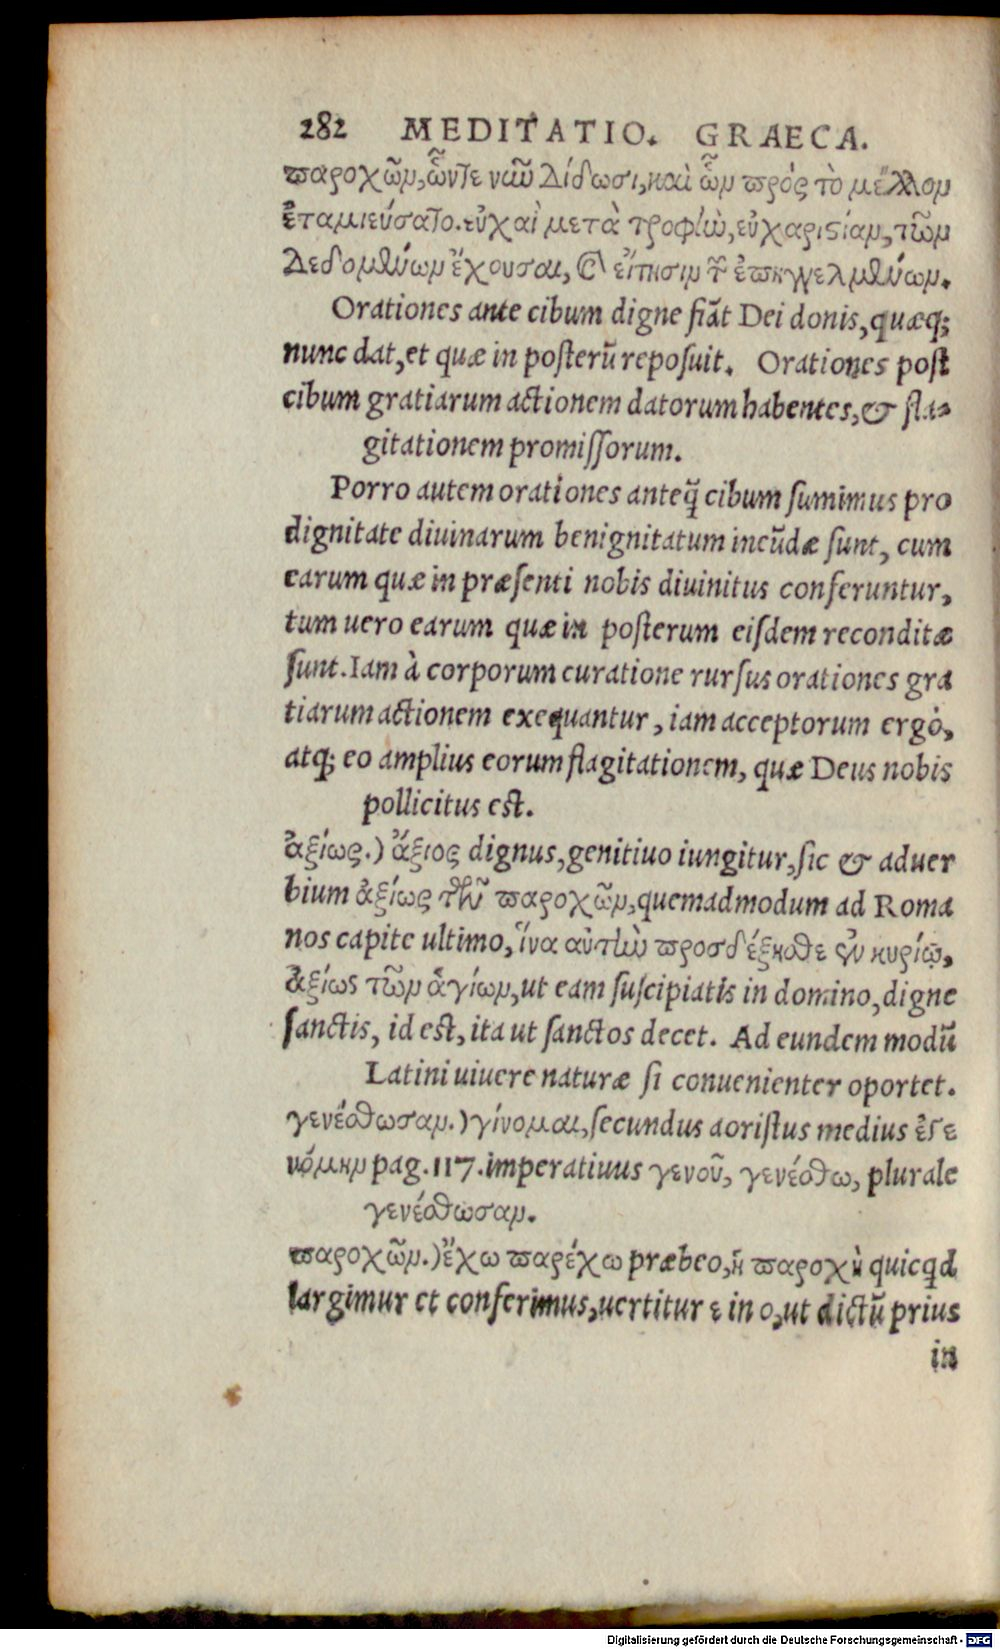 282 MEDITATIO. GRAECA.
παροχῶν, ὧν τε νῦν δίδωσι, καὶ ὧν πρὸς τὸ μέλλον
ἐταμιεύσατο. εὐχαὶ μετὰ τροφὴν, εὐχαριστίαν, τῶν
δεδομένων ἔχουσαι, καὶ αἴτησιν τῶν ἐπηγγελμένων.
Orationes ante cibum digne fiãt Dei donis, quæq;
nunc dat, et quæ in posterũ reposuit. Orationes post
cibum gratiarum actionem datorum habentes, & fla-
gitationem promissorum.
Porro autem orationes anteq̃ cibum sumimus pro
dignitate diuinarum benignitatum incũdæ sunt, cum
earum quæ in præsenti nobis diuinitus conferuntur,
tum uero earum quæ in posterum eisdem reconditæ
sunt. Iam à corporum curatione rursus orationes gra
tiarum actionem exequantur, iam acceptorum ergò,
atq; eo amplius eorum flagitationem, quæ Deus nobis
pollicitus est.
ἀξίως.) ἄξιος dignus, genitiuo iungitur, sic & aduer
bium ἀξίως τῶν παροχῶν, quemadmodum ad Roma
nos capite ultimo, ἵνα αὐτὴν προσδέξησθε ἐν κυρίῳ,
ἀξίως τῶν ἁγίων, ut eam suscipiatis in domino, digne
sanctis, id est, ita ut sanctos decet. Ad eundem modũ
Latini uiuere naturæ si conuenienter oportet.
γενέσθωσαν.) γίνομαι, secundus aoristus medius ἐγε
νόμην pag. 117. imperatiuus γενοῦ, γενέσθω, plurale
γενέσθωσαν.
παροχῶν.) ἔχω παρέχω præbeo, ἡ παροχὴ quicq̃d
largimur et conferimus, uertitur ε in ο, ut dictũ prius
in
Digitalisierung gefördert durch die Deutsche Forschungsgemeinschaft - DFG